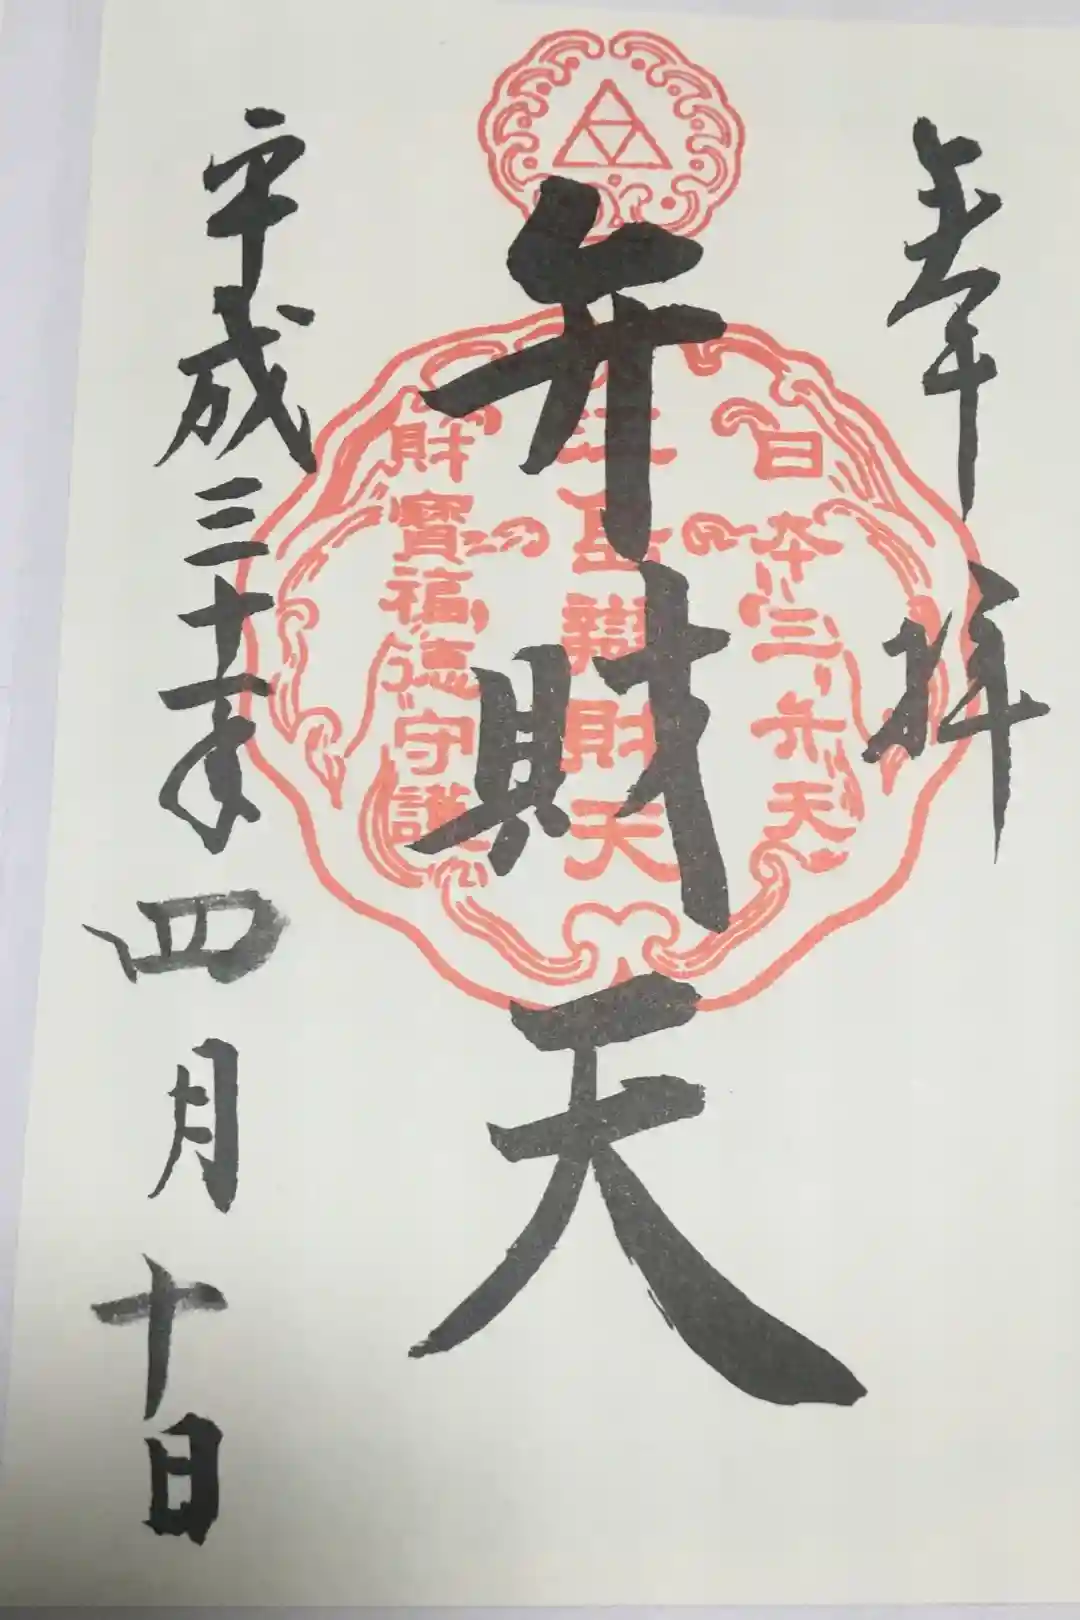 奉拝
日本三弁天
江島辯財天
財寶福徳守護
弁財天
平成三十一年四月十日